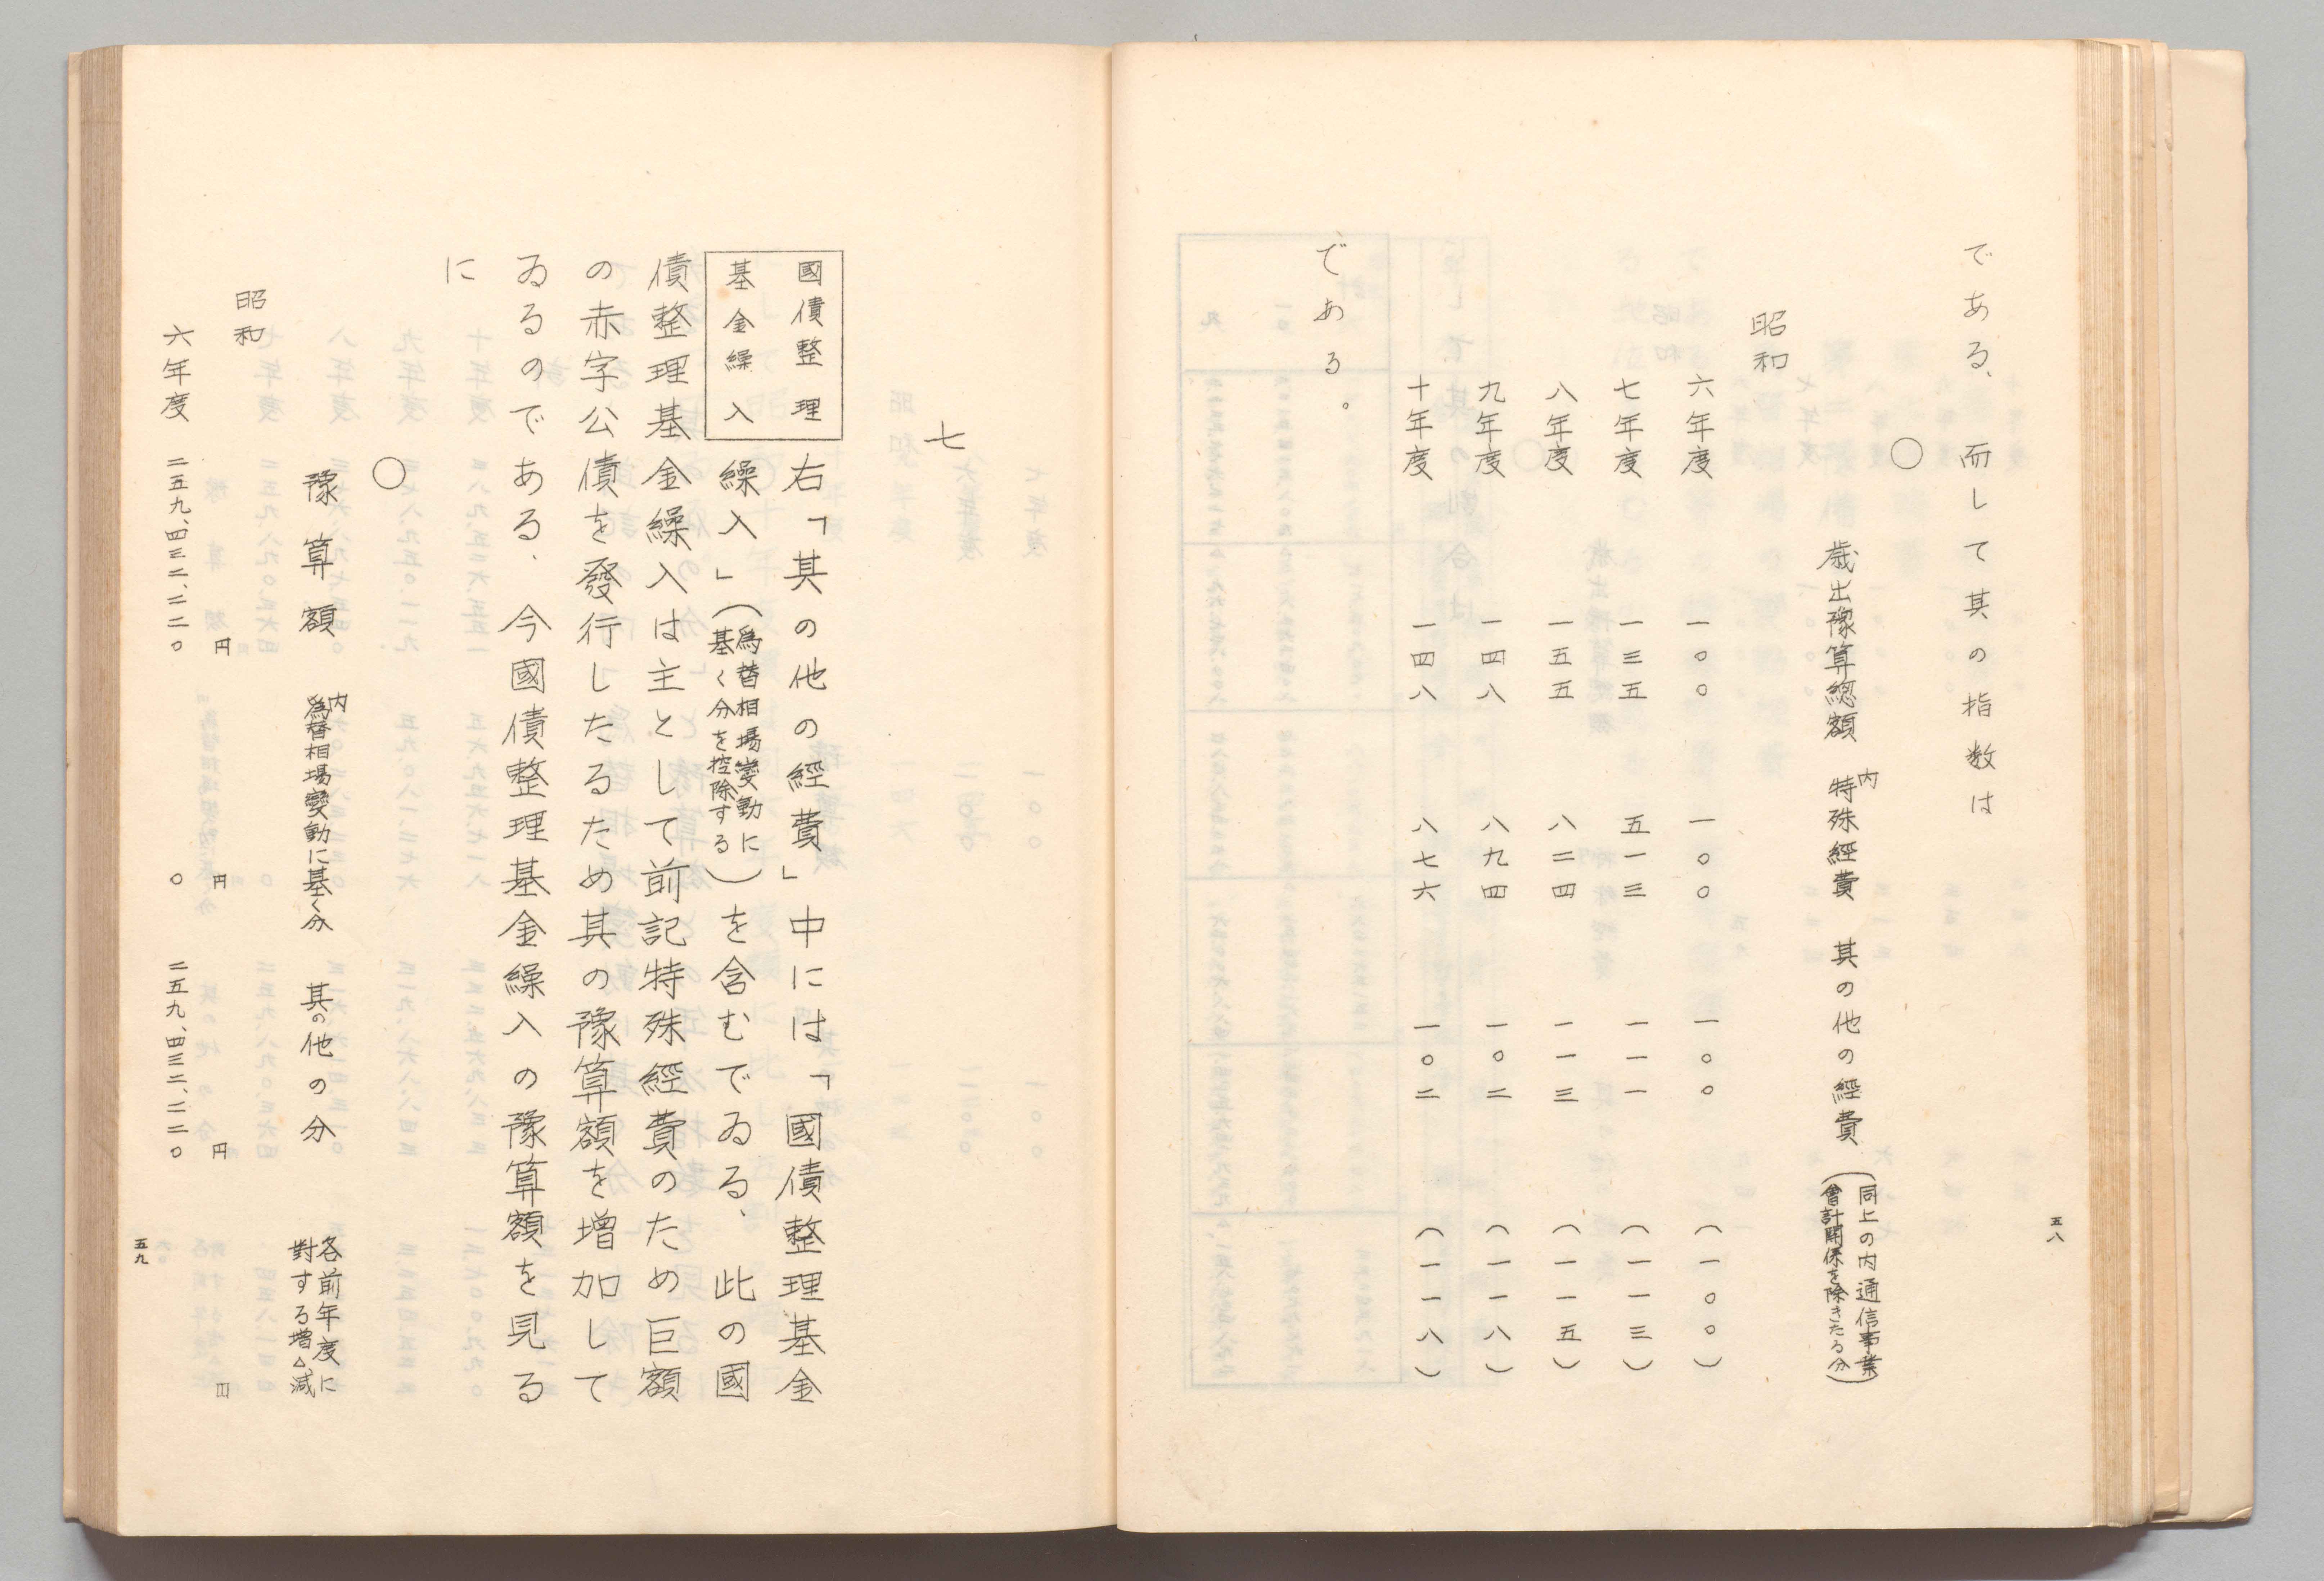 である、而して其の指数は
○
歳出豫算總額　内特殊經費　其の他の經費（同上の内通信事業會計関係を除きたる分）
昭和
六年度　一〇〇　一〇〇　一〇〇　（一〇〇）
七年度　一三五　五一三　一一一　（一一三）
八年度　一五五　八二四　一一三　（一一五）
九年度　一四八　八九四　一〇二　（一一八）
十年度　一四八　八七六　一〇二　（一一八）
である。
五八
七
國債整理
基金繰入
右「其の他の經費」中には「國債整理基金
繰入」（爲替相場變動に基く分を控除する）を含むでゐる、此の國
債整理基金繰入は主として前記特殊經費のため巨額
の赤字公債を發行したるため其の豫算額を増加して
ゐるのである、今國債整理基金繰入の豫算額を見る
に
○
豫算額　内爲替相場變動に基く分　其の他の分　各前年度に對する増△減
昭和
円　円　円　円
六年度　二五九、四三二、二二〇　〇　二五九、四三二、二二〇
五九